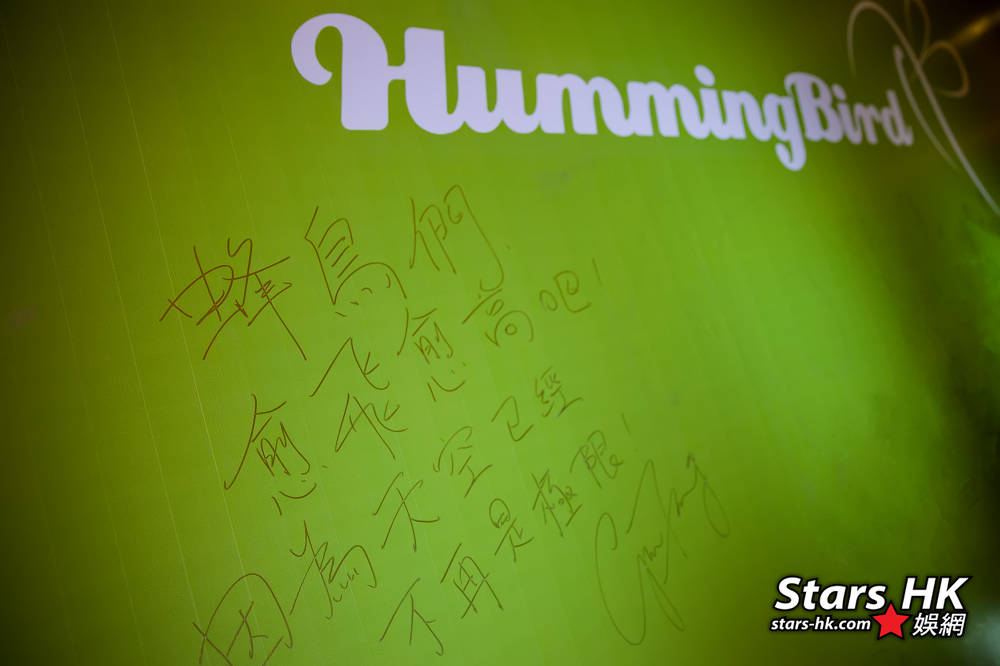 HummingBird
蜂鳥們
愈飛愈高吧！
因為天空已經
不再是極限！
Stars HK
stars-hk.com 娛網